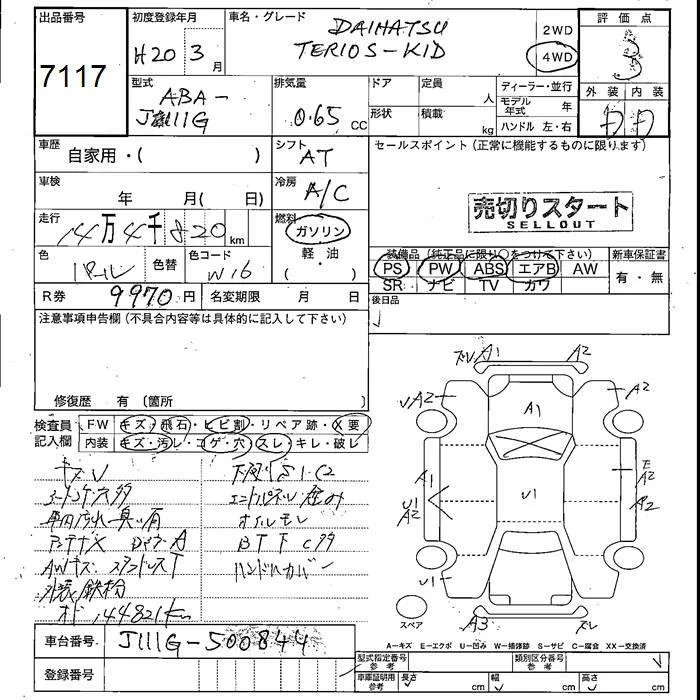 出品番号
7117
初度登録年月
H20 3月
車名・グレード
DAIHATSU
TERIOS-KID
2WD
4WD
評価点
3
外装 内装
型式
ABA-
J111G
排気量
0.65 CC
ドア
定員
人
形状
積載
kg
ディーラー・並行
モデル年式 年
ハンドル 左・右
車歴
自家用・( )
シフト
AT
セールスポイント (正常に機能するものに限ります)
車検
年 月( 日)
冷房
A/C
売切りスタート
SELLOUT
走行
14万4千820km
燃料
ガソリン
軽・油
( )
色
色替
色コード
W16
装備品 (純正品に限り○をつけて下さい)
新車保証書
PS PW ABS エアB AW
SR ナビ TV カワ
有・無
R券 9970円
名変期限 月 日
後日品
注意事項申告欄 (不具合内容等は具体的に記入して下さい)
修復歴 有 (箇所 )
検査員記入欄
FW キズ・飛石・ヒビ割・リペア跡・X要
内装 キズ・汚レ・コゲ・穴・スレ・キレ・破レ
キズU
下廻りS1・C2
オイルモレ
ハンドルカバー
外装鉄粉
144821Km
A1 A2
UA2
A2
A1
A1
U1
A2
U1
E
A2
A2
U1
A3
スペア
A-キズ E-エクボ U-凹み W-補修跡 S-サビ C-腐食 XX-交換済
車台番号 J111G-500844
登録番号
型式指定番号 参考
類別区分番号 参考
車庫証明用 参考
長さ cm 幅 cm 高さ cm